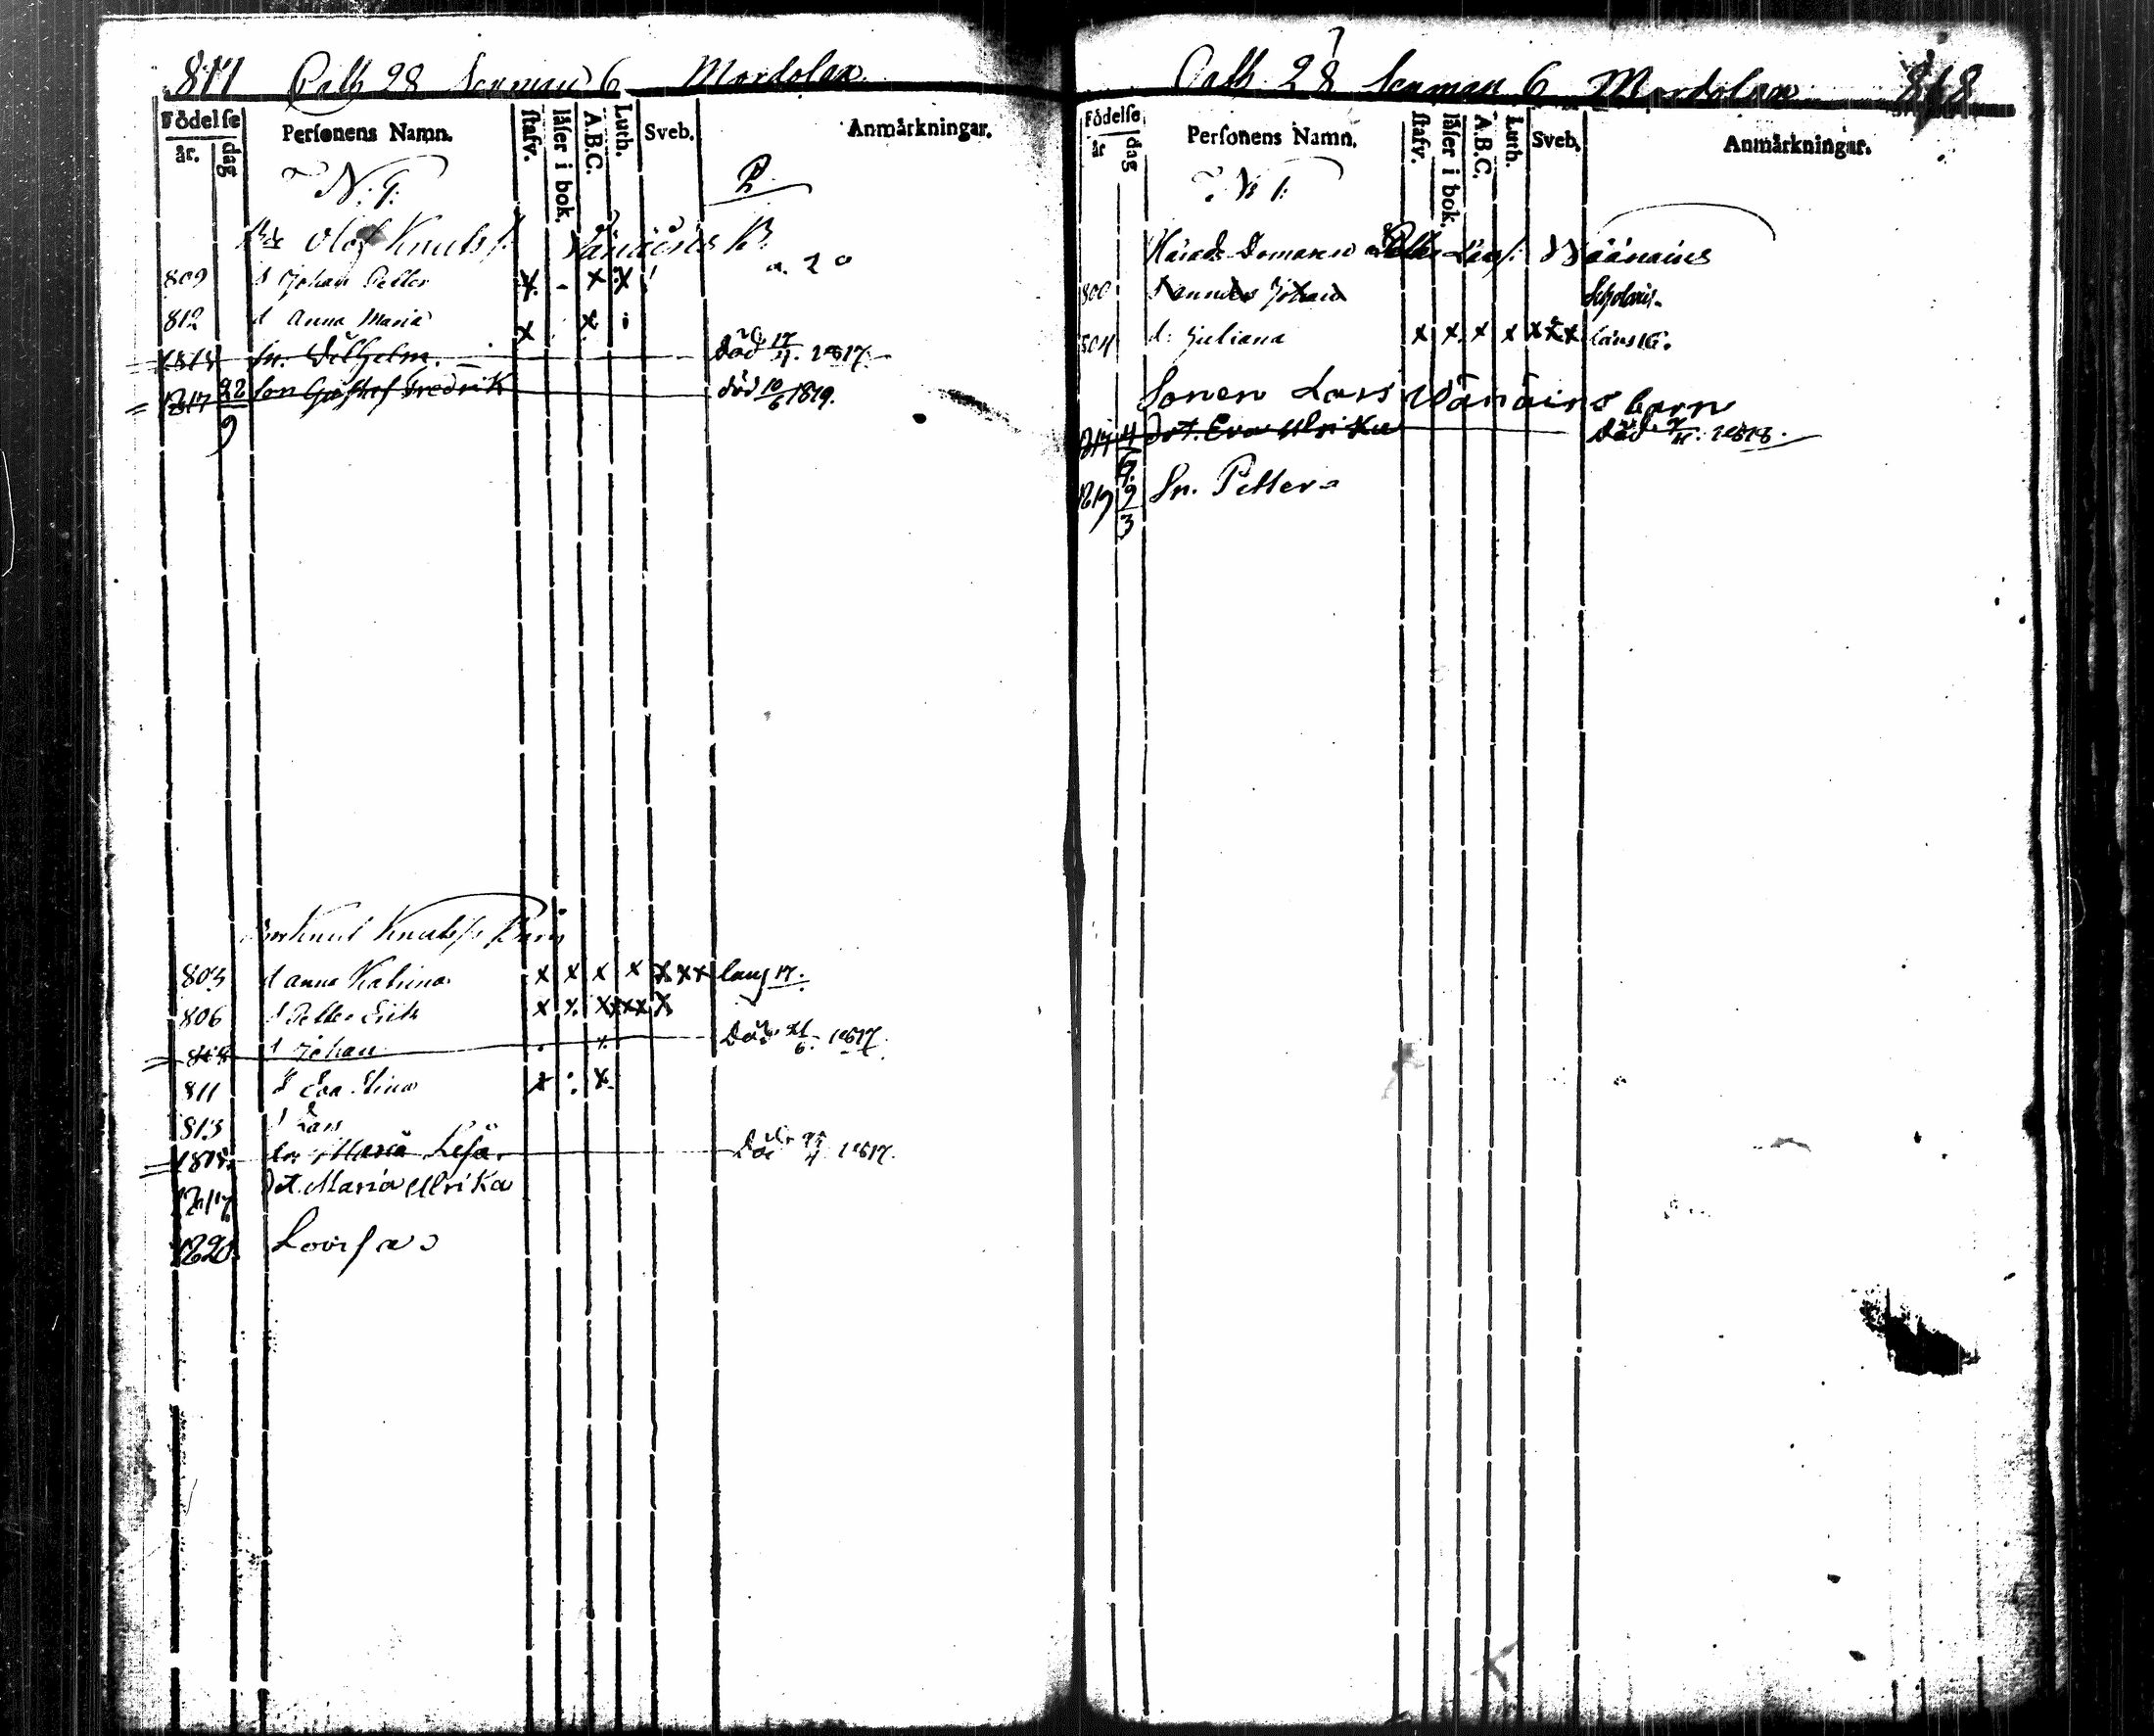 817 Pelts 28 Lenman 6 Mordolax
Födelse
år. dag Personens Namn. stafv. läser i bok. A.B.C. Luth. Sveb. Anmärkningar.
N: 9:
Olof Knutss: Vänäins B.
809 s Johan Petter x - x x
812 d Anna Maria x x
1815 Sn. Vilhelm. död 17/4. 1817.
1817 22/9 Son Gustaf Fredrik död 10/6 1819.
Knut Knutss Barn
803 d Anna Katrina x x x x x x x lauf 17.
806 s Petter Erik x x x x x x x
s Johan Död 21/6. 1817.
811 d Eva Stina x x
813 s Lars
1815. Maria Lisa. Död 1817.
1817 Dot. Maria Ulrika
1820. Lovisa
28 Lenman 6 Mordolax 818
Födelse
år dag Personens Namn. stafv. läser i bok. A.B.C. Luth. Sveb. Anmärkningar.
N 1:
Härads Domaren Petter Larss: Wäänäins
800 Johan Scholaris
804 d: Juliana x x x x x x x
Sonen Lars Wänäins barn
1817 Dot. Eva Ulrika Död 1818.
1819 2/3 Sn. Petter